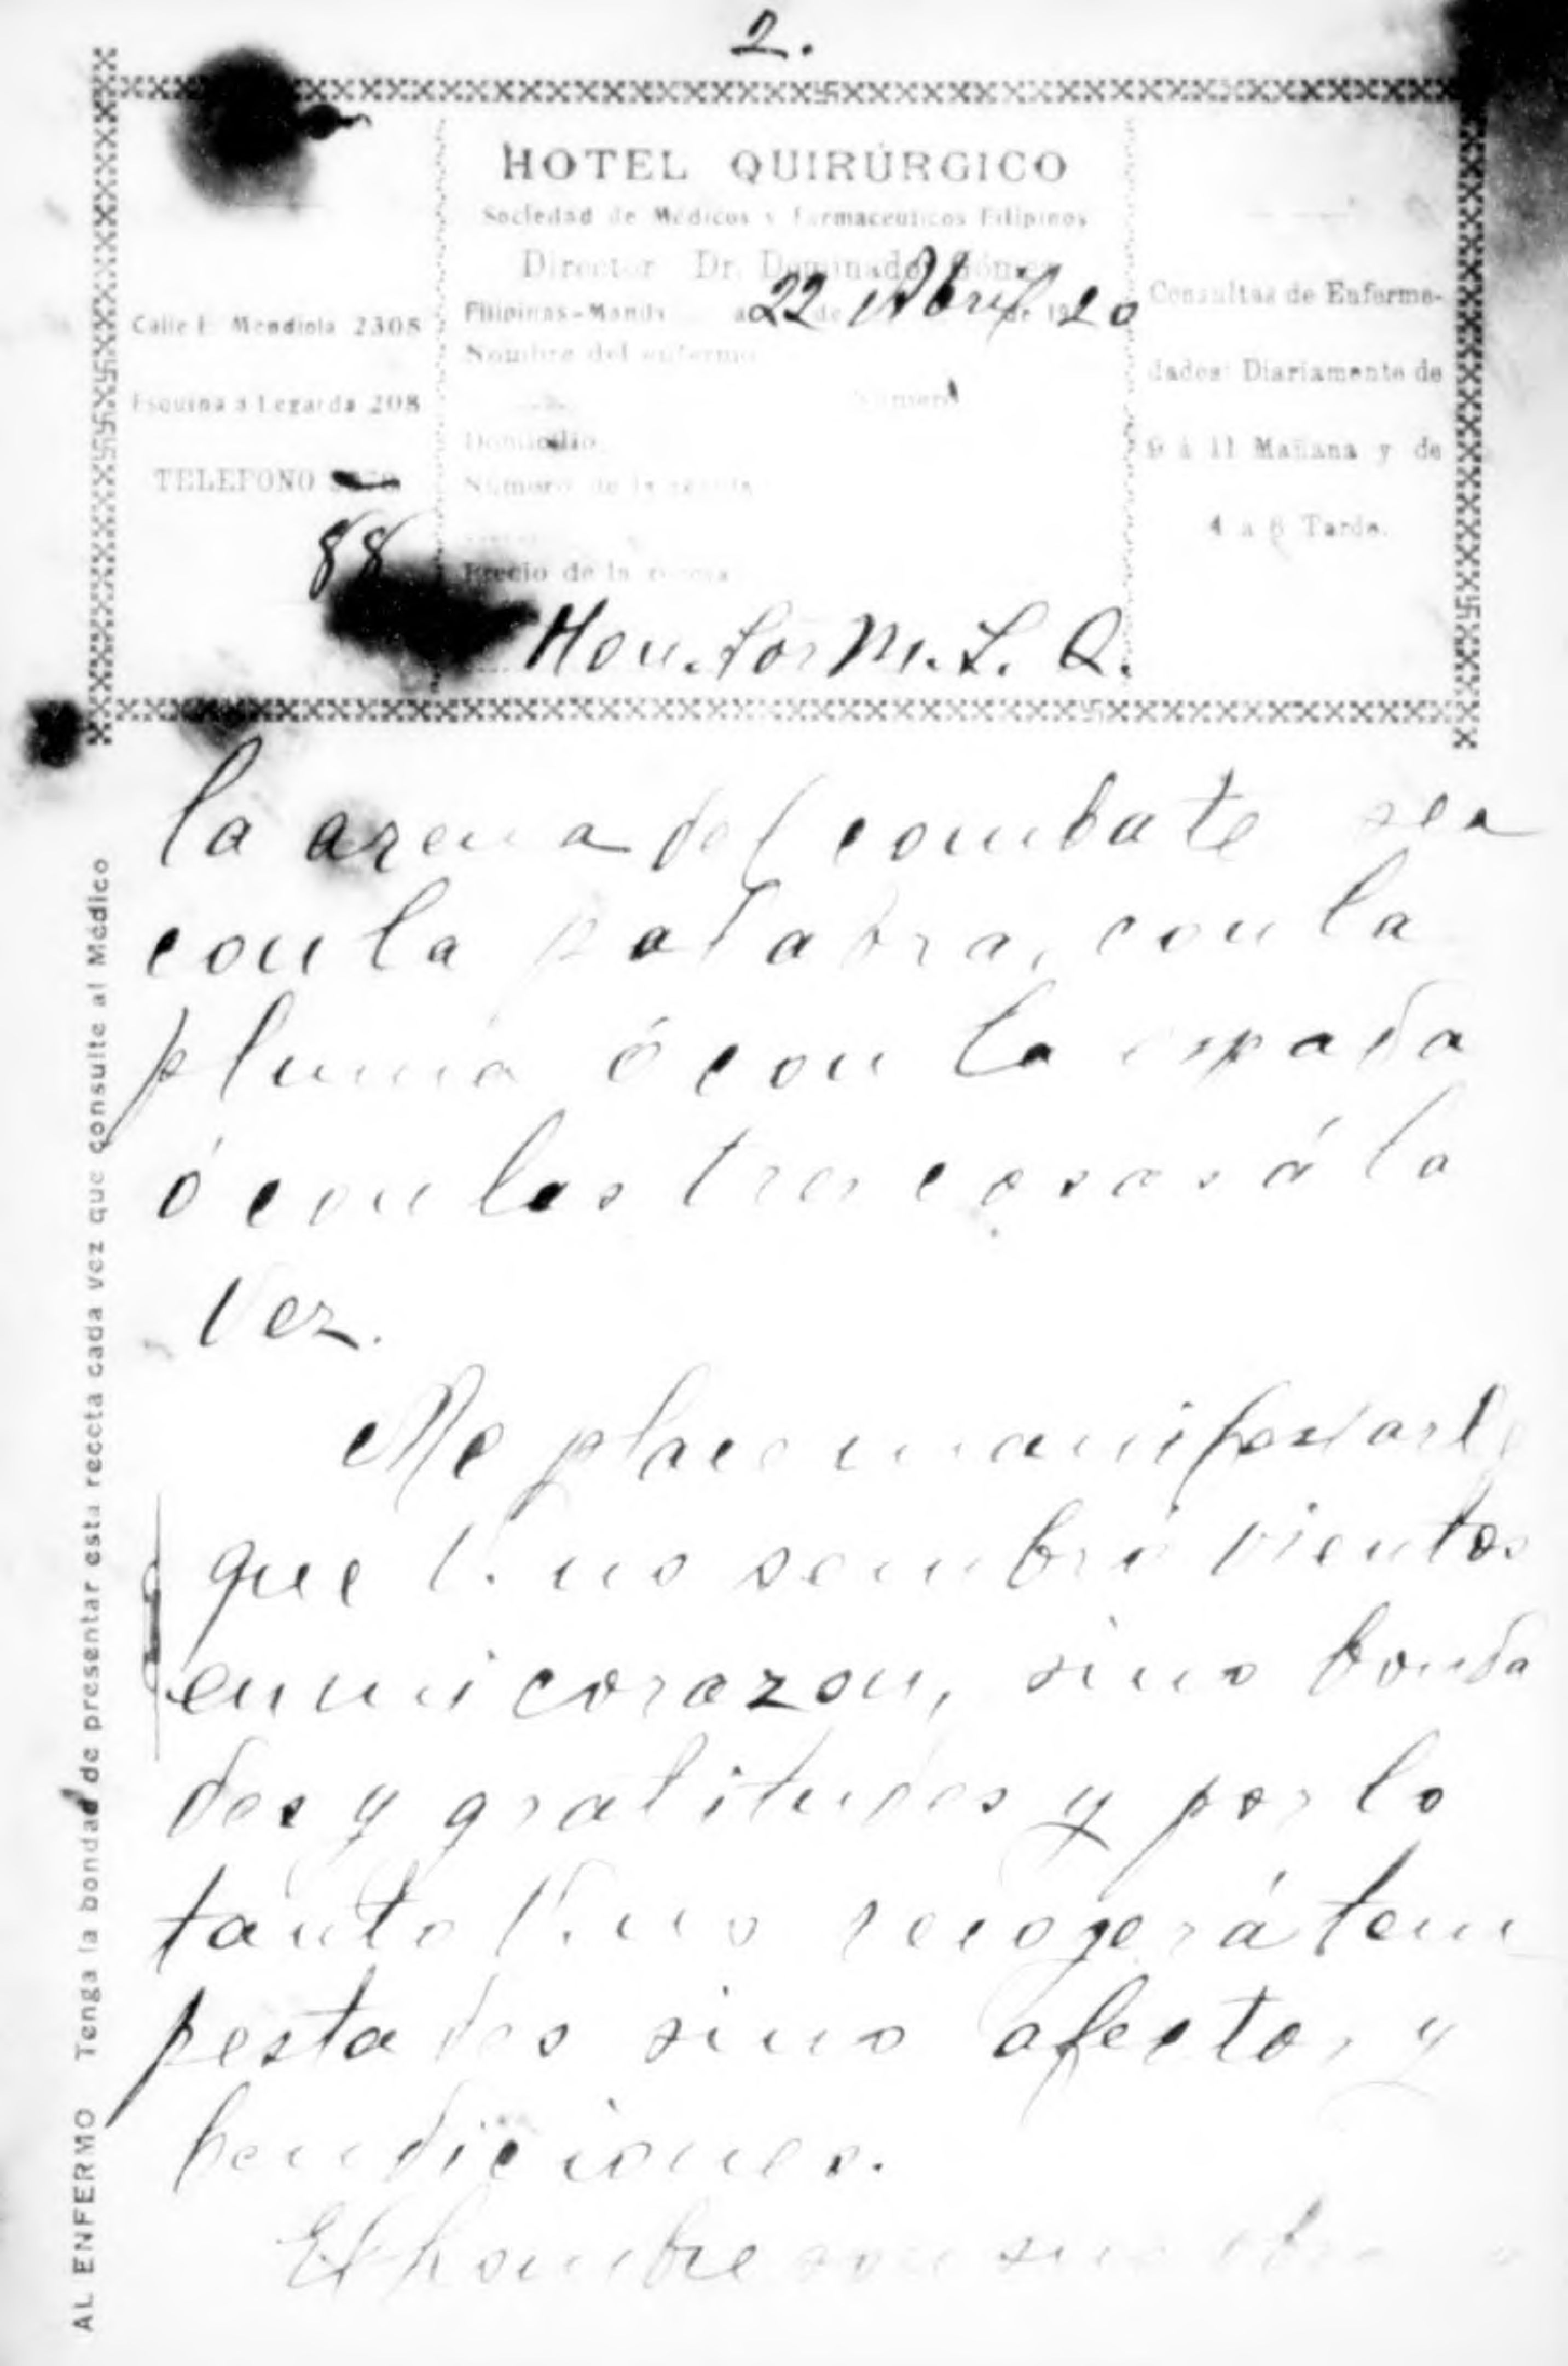 2.
HOTEL QUIRÚRGICO
Sociedad de Médicos y Farmaceuticos Filipinos
Director Dr. Dominador Gómez
Filipinas-Manila a 22 de Abril de 1920
Nombre del enfermo
Número
Domicilio
Número de la receta
Precio de la receta
Calle F. Mendiola 2305
Esquina a Legarda 208
TELEFONO
88
Consultas de Enferme-
dades: Diariamente de
9 á 11 Mañana y de
4 a 6 Tarde.
Hon. Sor M. L. Q.
la arena del combate sea
con la palabra, con la
pluma ó con la espada
ó con las tres cosas á la
vez.
Me place manifestarle
que V. no sembró vientos
en mi corazon, sino bonda
des y gratitudes y por lo
tanto V. no recogerá tem
pestades sino afectos y
bendiciones.
El hombre son sus obras
AL ENFERMO Tenga la bondad de presentar esta receta cada vez que consulte al Médico